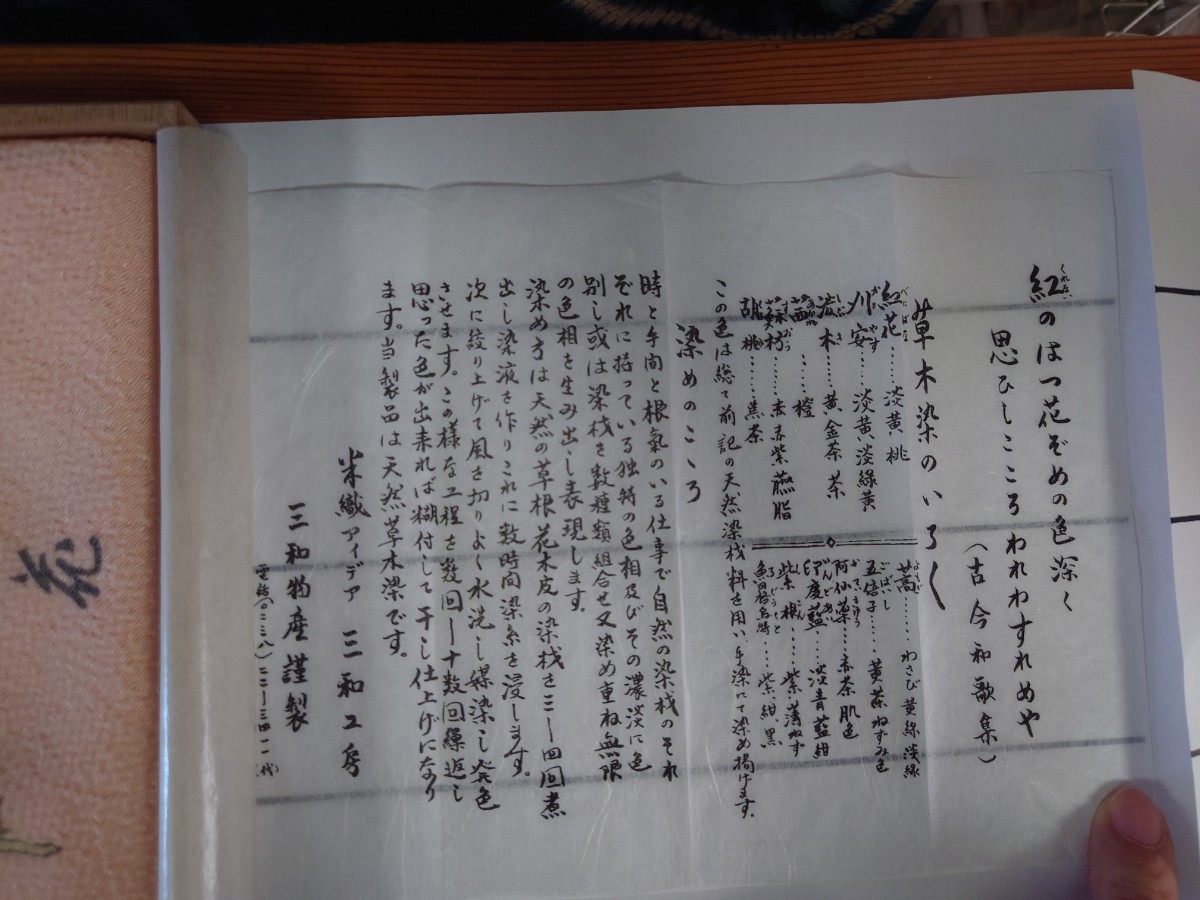 紅のはつ花ぞめの色深く
くれない
思ひしこころわれわすれめや
(古今和歌集)
草木染のいろく
紅花……淡黄 桃
べにばな
刈安……淡黄淡緑黄
かりやす
渋木……黄金茶 茶
しぶき
茜……橙
あかね
蘇枋……赤赤紫臙脂
すおう
胡桃……焦茶
蓬……わさび黄緑淡緑
よもぎ
五倍子……黄茶ねずみ色
ごばいし
阿仙薬……赤茶 肌色
印度藍…淡青藍紺
いんどあい
紫根……紫 薄ねず
しこん
……紫紺、黒
この色は総て前記の天然染材料を用い手染にて染め揚げます。
染めのこゝろ
時と手間と根氣のいる仕事で自然の染材のそれ
ぞれに持っている独特の色相及びその濃淡に色
別し或は染材を数種類組合せ又染め重ね無限
の色相を生み出し表現します。
染め方は天然の草根花木皮の染材を三~四回煮
出し染液を作りこれに数時間染糸を浸します。
次に絞り上げて風を切りよく水洗し媒染し発色
させます。この様な工程を数回~十数回繰返し
思った色が出来れば糊付して干し仕上げになり
ます。当製品は天然草木染です。
米織アイデア 三和工房
三和物産謹製
電話(〇二三八)二二-三四一一(代)
花